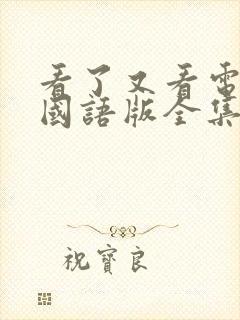 看了又看電
國語版全集
祝寶良